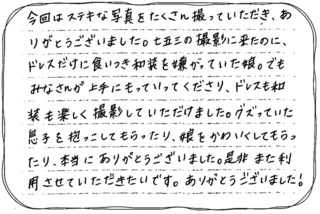 今回はステキな写真をたくさん撮っていただき、あ
りがとうございました。七五三の撮影に来たのに、
ドレスだけに食いつき和装を嫌がっていた娘。でも
みなさんが上手にもっていってくださり、ドレスも和
装も楽しく撮影していただけました。グズっていた
息子を抱っこしてもらったり、娘をかわいくしてもらっ
たり、本当にありがとうございました。是非また利
用させていただきたいです。ありがとうございました!